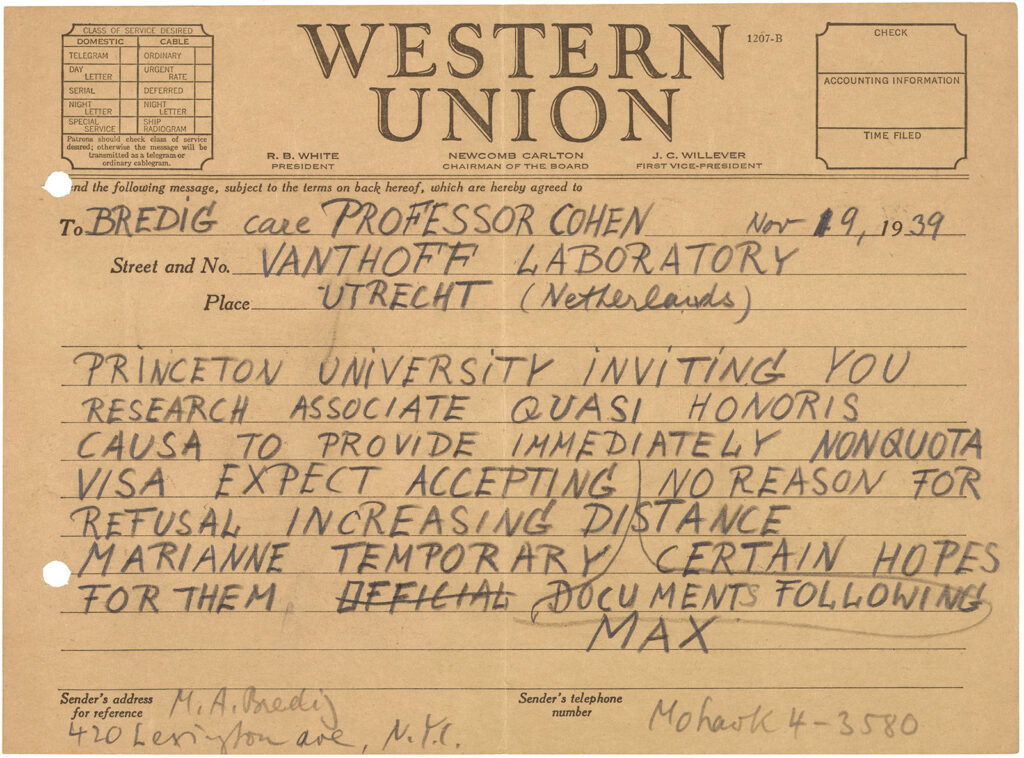 CLASS OF SERVICE DESIRED
DOMESTIC CABLE
TELEGRAM ORDINARY
DAY LETTER URGENT RATE
SERIAL DEFERRED
NIGHT LETTER NIGHT LETTER
SPECIAL SERVICE SHIP RADIOGRAM
Patrons should check class of service
desired; otherwise the message will be
transmitted as a telegram or
ordinary cablegram.
WESTERN
UNION
1207-B
CHECK
ACCOUNTING INFORMATION
TIME FILED
R. B. WHITE
PRESIDENT
NEWCOMB CARLTON
CHAIRMAN OF THE BOARD
J. C. WILLEVER
FIRST VICE-PRESIDENT
nd the following message, subject to the terms on back hereof, which are hereby agreed to
To BREDIG care PROFESSOR COHEN Nov 19, 1939
Street and No. VANTHOFF LABORATORY
Place UTRECHT (Netherlands)
PRINCETON UNIVERSITY INVITING YOU
RESEARCH ASSOCIATE QUASI HONORIS
CAUSA TO PROVIDE IMMEDIATELY NONQUOTA
VISA EXPECT ACCEPTING NO REASON FOR
REFUSAL INCREASING DISTANCE
MARIANNE TEMPORARY CERTAIN HOPES
FOR THEM OFFICIAL DOCUMENTS FOLLOWING
MAX
Sender's address
for reference
M. A. Bredig
420 Lexington ave, N.Y.C.
Sender's telephone
number
Mohawk 4-3580